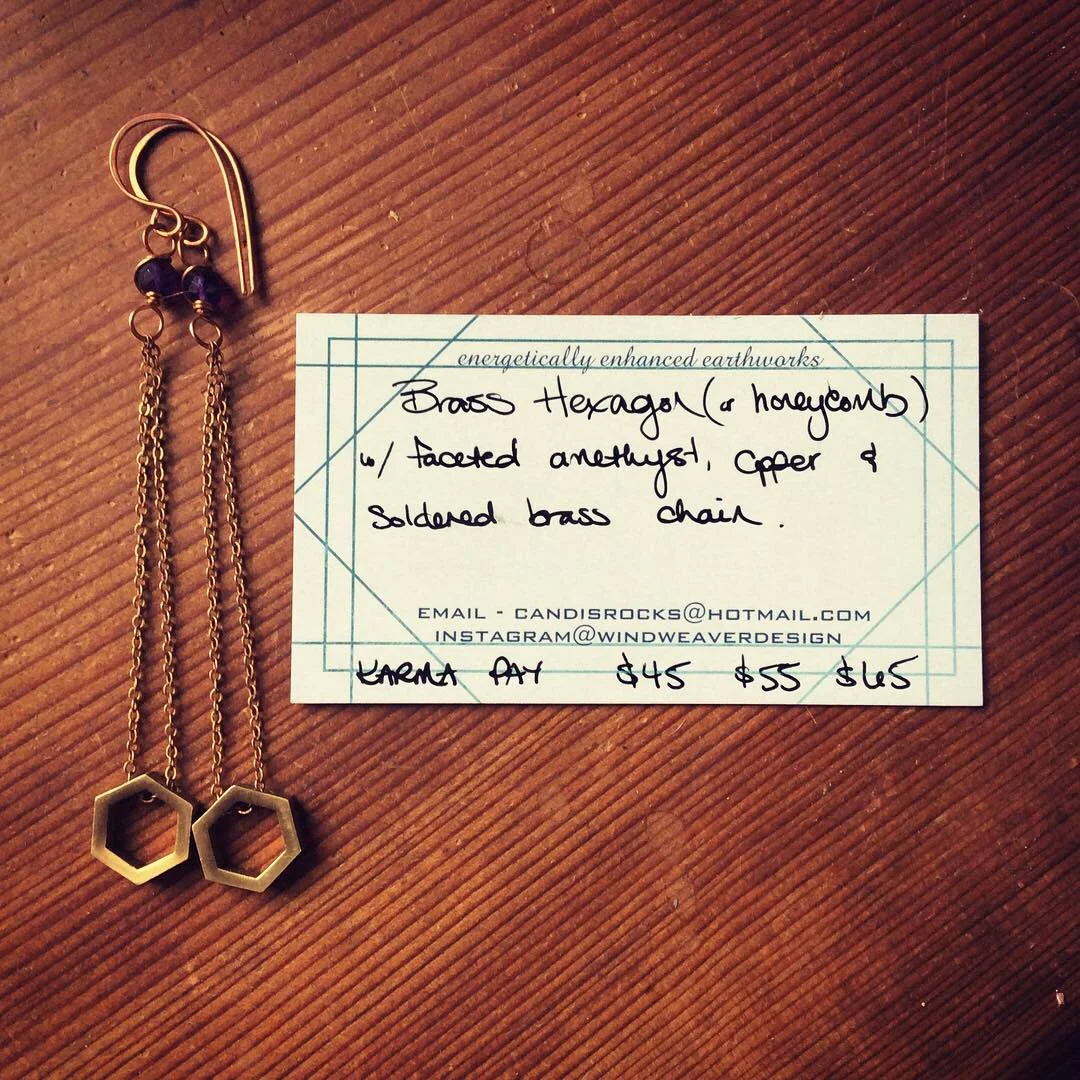 energetically enhanced earthworks
Brass Hexagon (or honeycomb)
w/ faceted amethyst, copper &
soldered brass chain.
EMAIL - CANDISROCKS@HOTMAIL.COM
INSTAGRAM@WINDWEAVERDESIGN
KARMA PAY $45 $55 $65